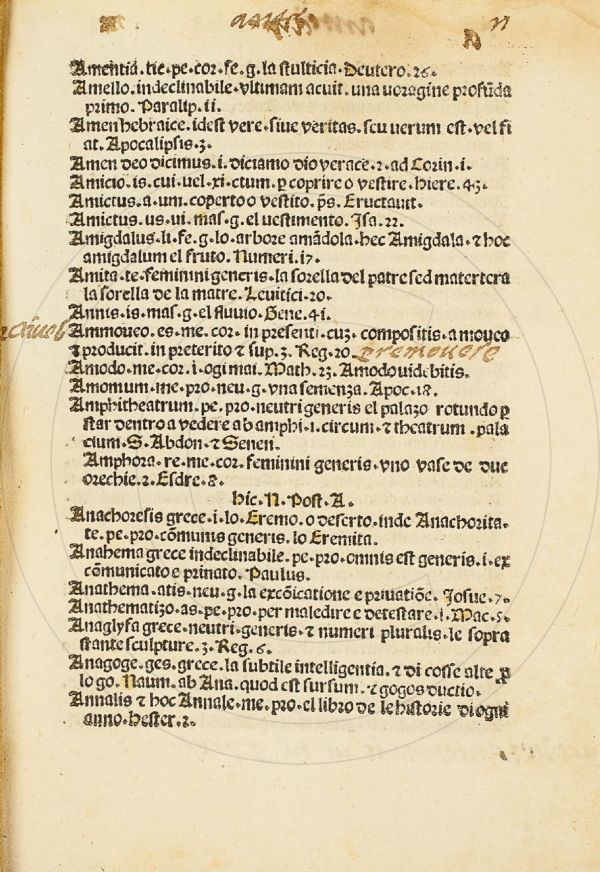 Amentia. tie. pe. cor. fe. g. la stulticia. Deutero. 26.
Amello. indeclinabile. vltimam acuit. una uoragine profũda
primo. Paralip. ii.
Amen hebraice. idest vere. siue veritas. seu uerum est. vel fi
at. Apocalipsis. 3.
Amen deo dicimus. i. diciamo dio verace. 2. ad Corin. i.
Amicio. is. cui. vel. xi. ctum. ꝑ coprire o vestire. hiere. 43.
Amictus. a. um. coperto o vestito. p̄s. Eructauit.
Amictus. us. ui. mas. g. el uestimento. Isa. 22.
Amigdalus. li. fe. g. lo. arbore amãdola. hec Amigdala. ⁊ hoc
amigdalum el fruto. Numeri. 17.
Amita. te. feminini generis. la sorella del patre sed matertera
la sorella de la matre. Leuitici. 20.
Amnis. is. mas. g. el fluuio. Gene. 41.
Ammoueo. es. me. cor. in presenti. cuʒ. compositis. a moueo
⁊ producit. in preterito ⁊ sup. 3. Reg. 20. premouere
Amodo. me. cor. i. ogi mai. Math. 23. Amodo uidebitis.
Amomum. me. pro. neu. g. vna semenza. Apoc. 18.
Amphitheatrum. pe. pro. neutri generis el palazo rotundo ꝑ
star dentro a vedere ab amphi. i. circum. ⁊ theatrum. pala
cium. S. Abdon. ⁊ Senen.
Amphora. re. me. cor. feminini generis. vno vase de due
orechie. 2. Esdre. 8.
hic. N. Post. A.
Anachoresis grece. i. lo. Eremo. o deserto. inde Anachorita.
te. pe. pro. cõmunis generis. lo Eremita.
Anahema grece indeclinabile. pe. pro. omnis est generis. i. ex
cõmunicato e priuato. Paulus.
Anathema. atis. neu. g. la excõicatione e priuatiõe. Josue. 7.
Anathematizo. as. pe. pro. per maledire e detestare. 1. Mac. 5.
Anaglyfa grece. neutri. generis. ⁊ numeri pluralis. le sopra
stante sculpture. 3. Reg. 6.
Anagoge. ges. grece. la subtile intelligentia. ⁊ di cosse alte ꝑ
lo go. Naum. ab Ana. quod est sursum. ⁊ gogos ductio.
Annalis ⁊ hoc Annale. me. pro. el libro de le historie di ogni
anno. hester. 2.